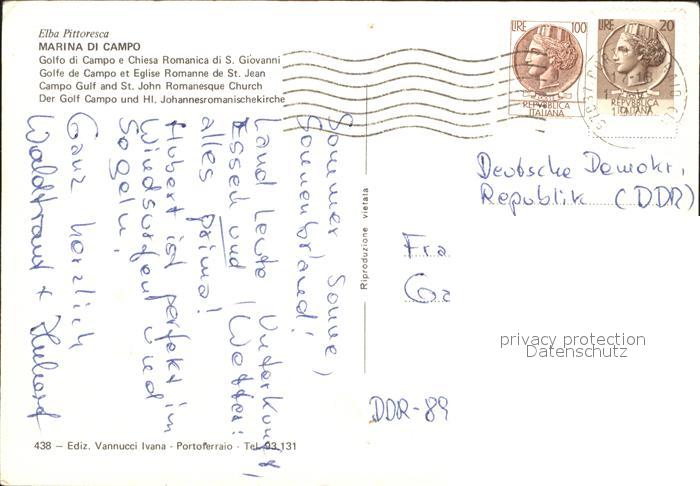 Elba Pittoresca
MARINA DI CAMPO
Golfo di Campo e Chiesa Romanica di S. Giovanni
Golfe de Campo et Eglise Romanne de St. Jean
Campo Gulf and St. John Romanesque Church
Der Golf Campo und Hl. Johannesromanischekirche
LIRE 100
REPVBBLICA
ITALIANA
LIRE 20
REPVBBLICA
ITALIANA
Sommer, Sonne,
Sonnenbrand!
Land Leute Unterkunft,
Essen und (Wetter:
alles prima!
Hubert ist perfekt im
Windsurfen und
Segeln!
Ganz herzlich
Waldtraut + Hubert
Riproduzione vietata
Deutsche Demokr.
Republik (DDR)
Fra
Ga
privacy protection
Datenschutz
DDR-89
438 – Ediz. Vannucci Ivana - Portoferraio - Tel. 93.131